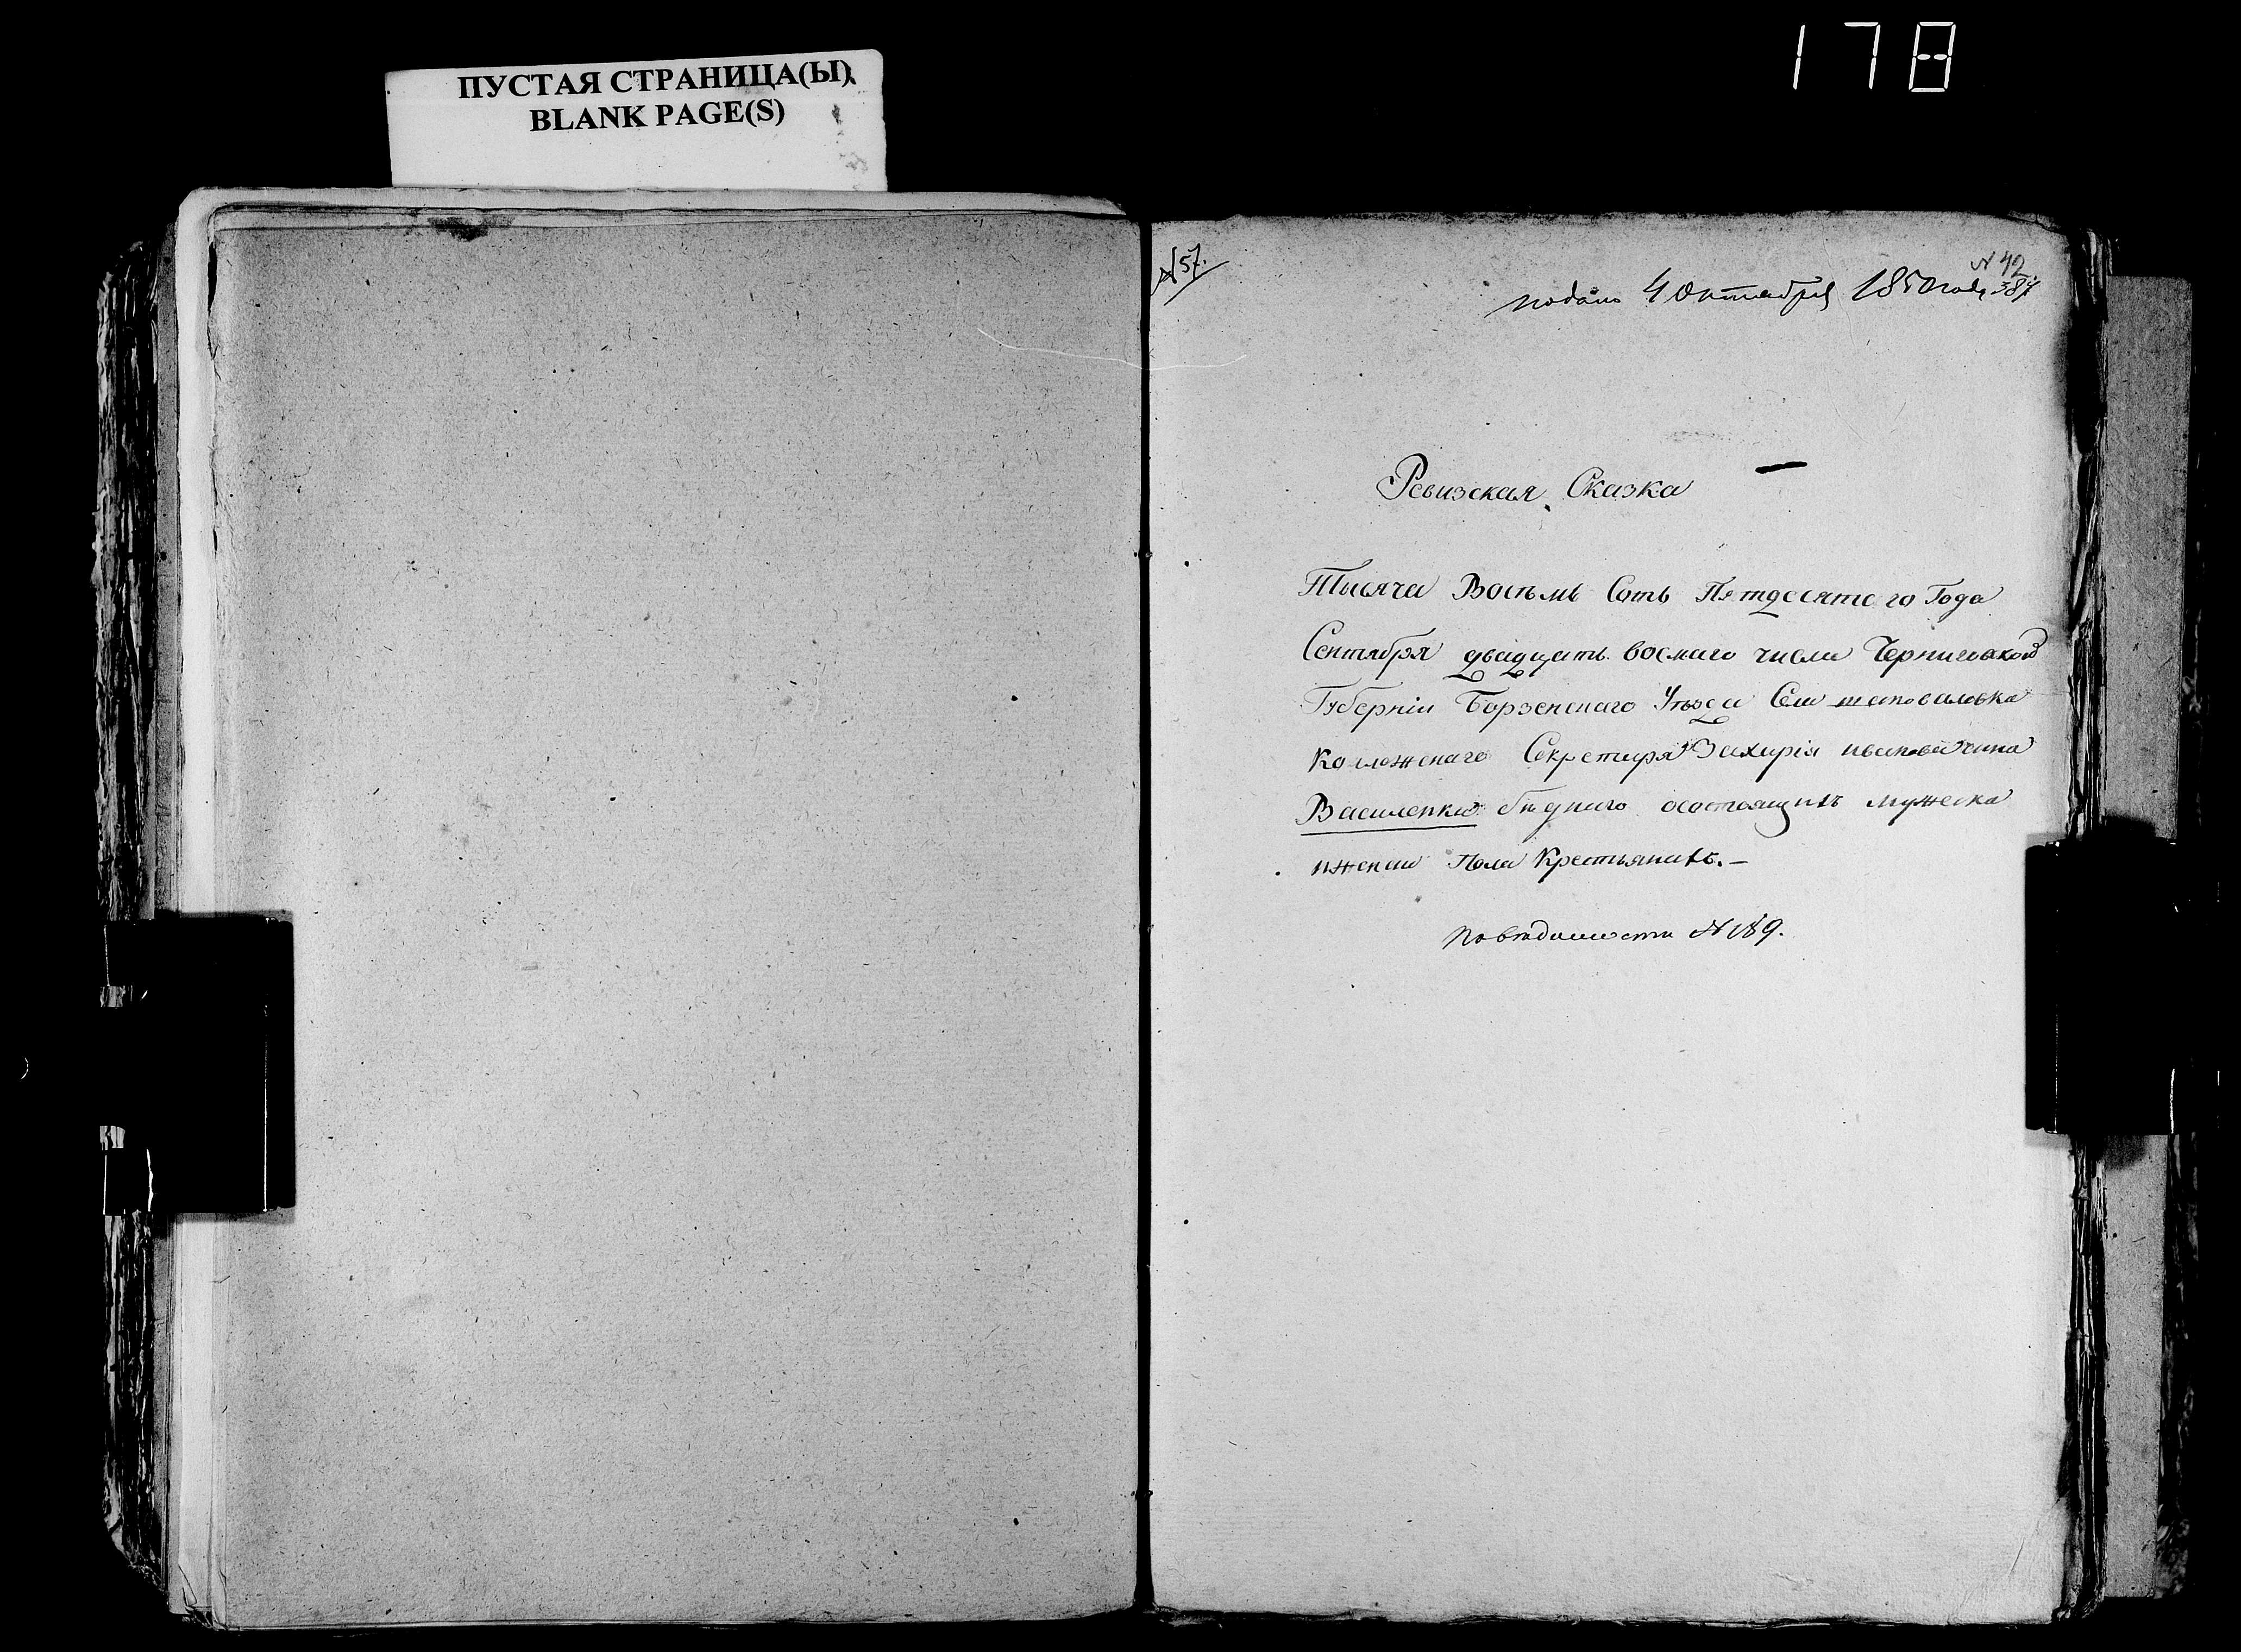 178
ПУСТАЯ СТРАНИЦА(Ы)
BLANK PAGE(S)
№ 57.
№ 42
подано 4 Октября 1850 года 387
Ревизская Сказка
Тысяча Восемь Сотъ Пятдесятого Года
Сентября двадцать восмаго числа Черниговской
Губерніи Борзенскаго Уѣзда Села шаповаловка
Колежскаго Секретаря Захарія ивановича сына
Василенка о состоящихъ мужеска
иженска Пола Крестьянахъ. —
По вѣдомости № 189.